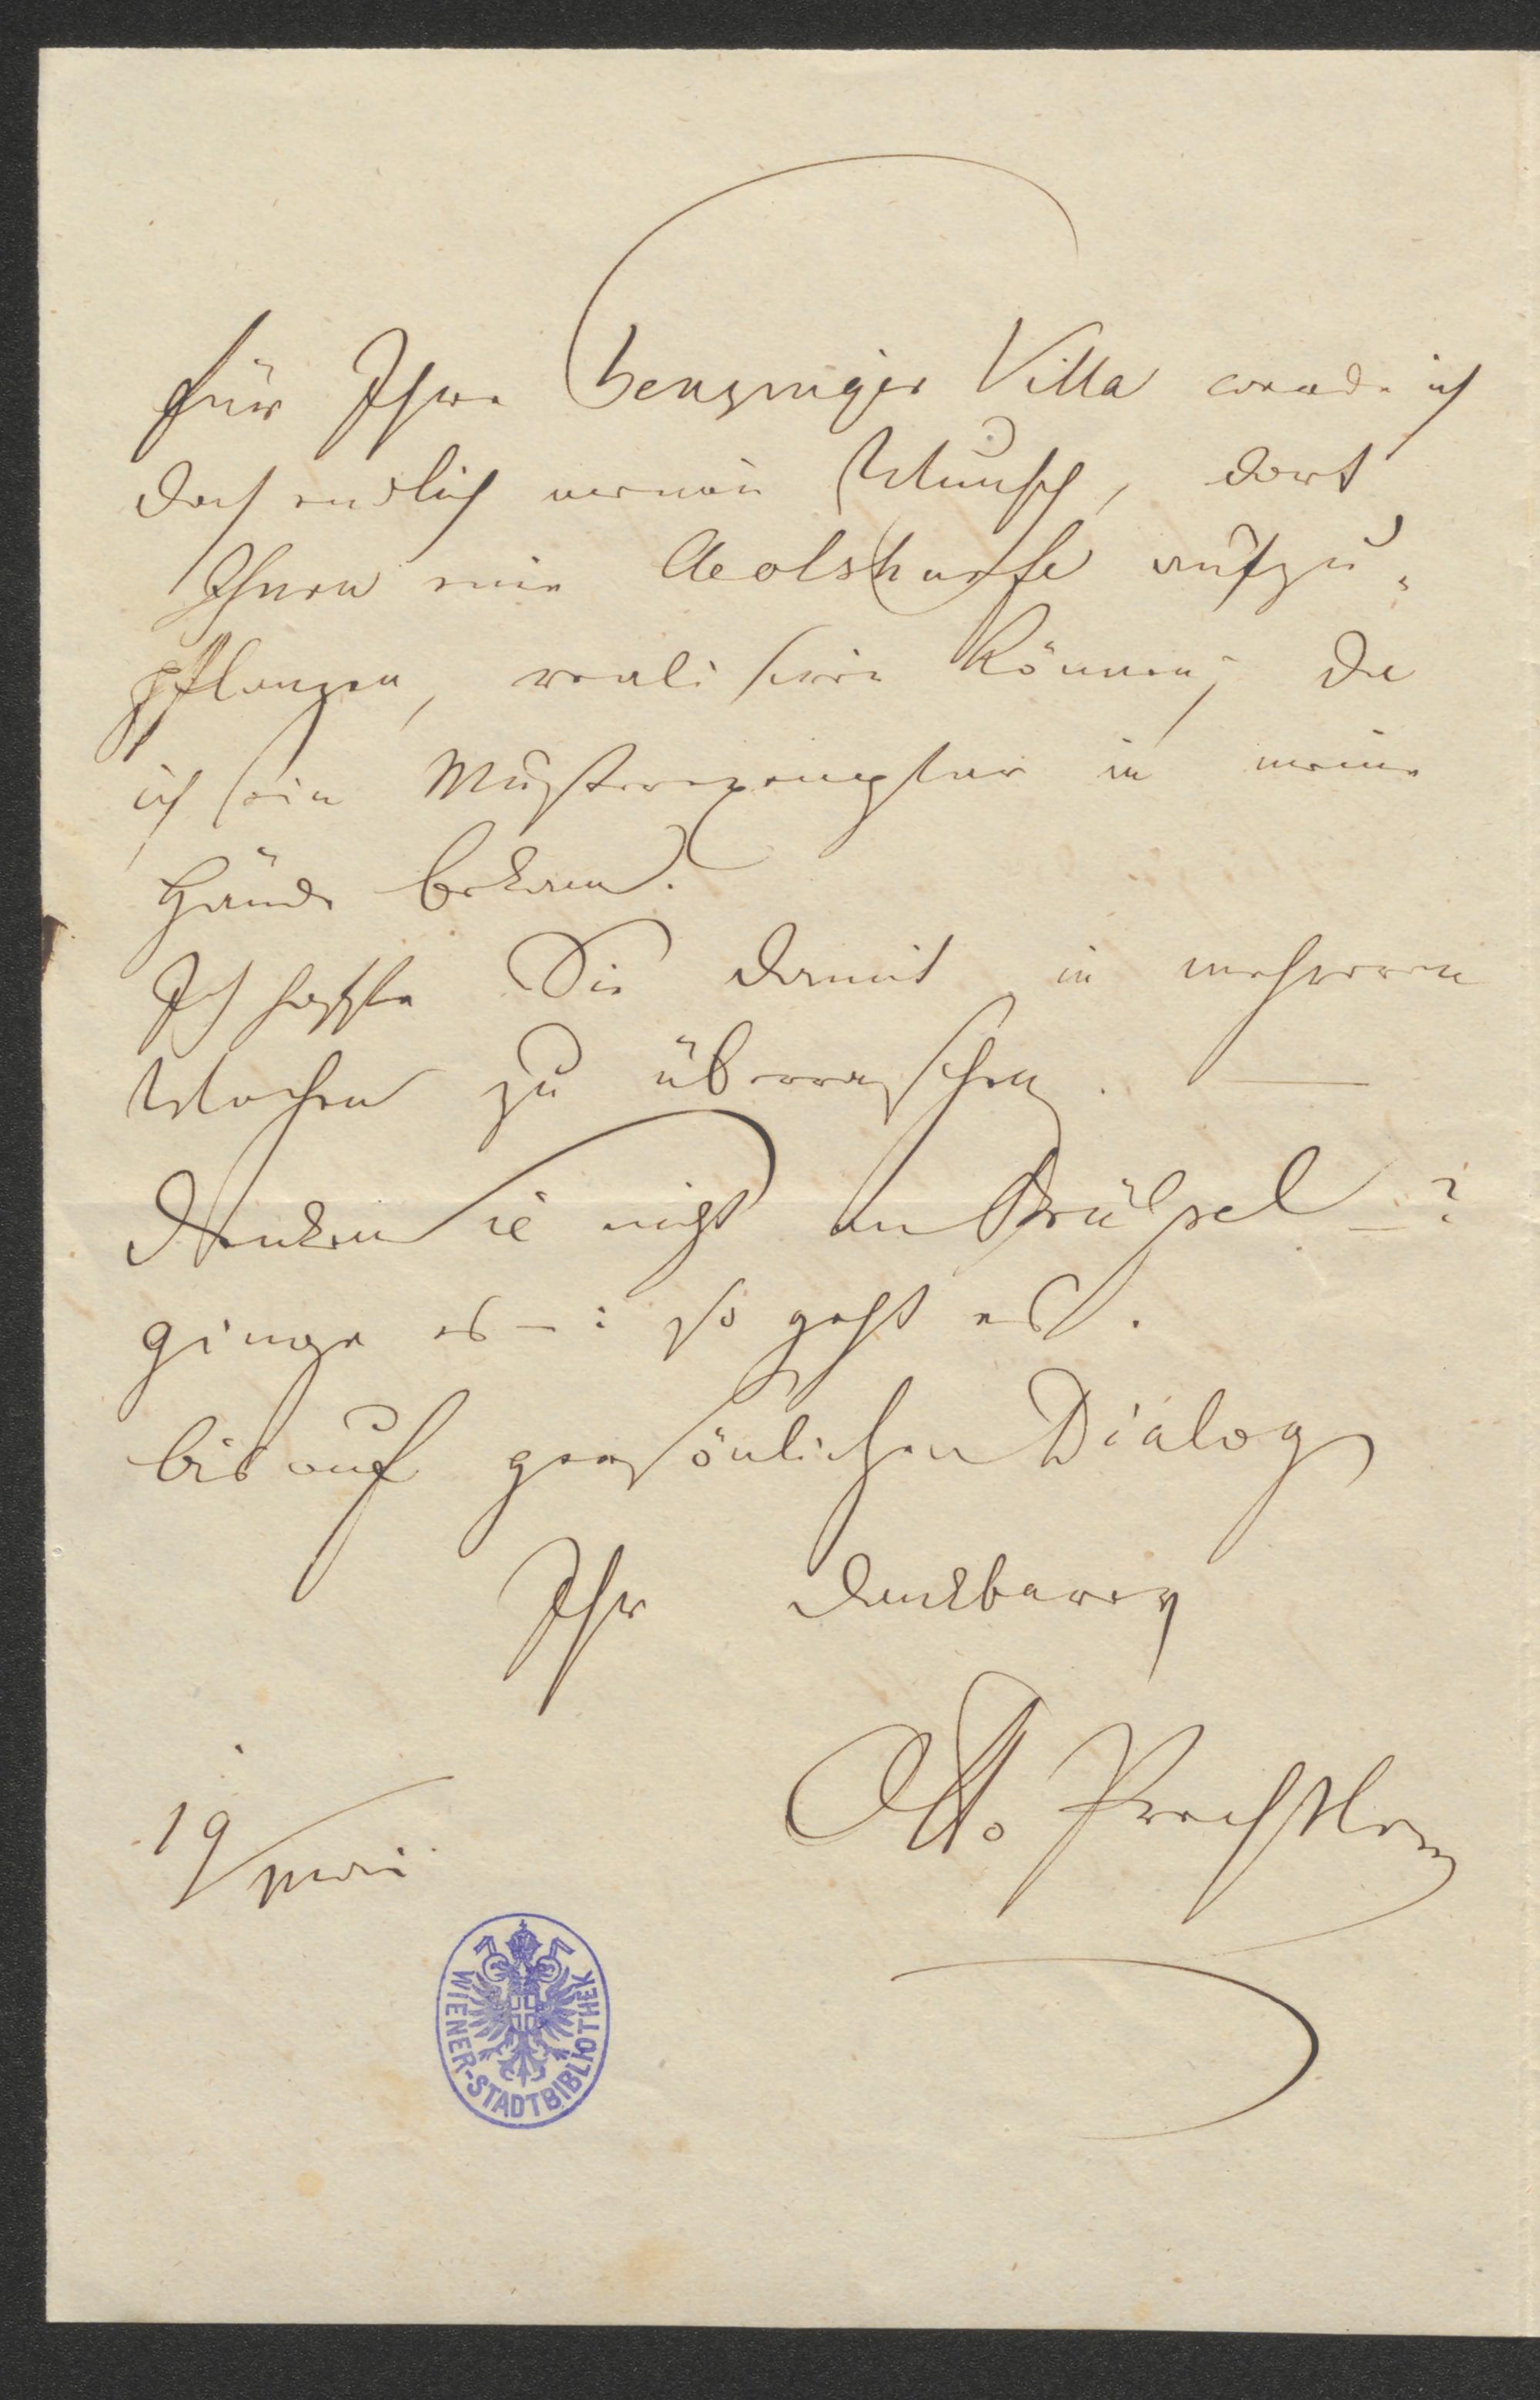 Für Ihre Penzinger Villa werde ich
doch endlich meinen Wunsch, dort
Ihnen eine Aeolsharfe aufzu-
pflanzen, realisiren können; da
ich ein Musterexemplar in meine
Hände bekam.
Ich hoffe Sie damit in mehreren
Wochen zu überraschen. —
Denken Sie nicht an –?
ginge es –: so geht es.
bis auf persönlichen Dialog
Ihr dankbarer
Otto Prechtler
19/Mai
WIENER-STADTBIBLIOTHEK